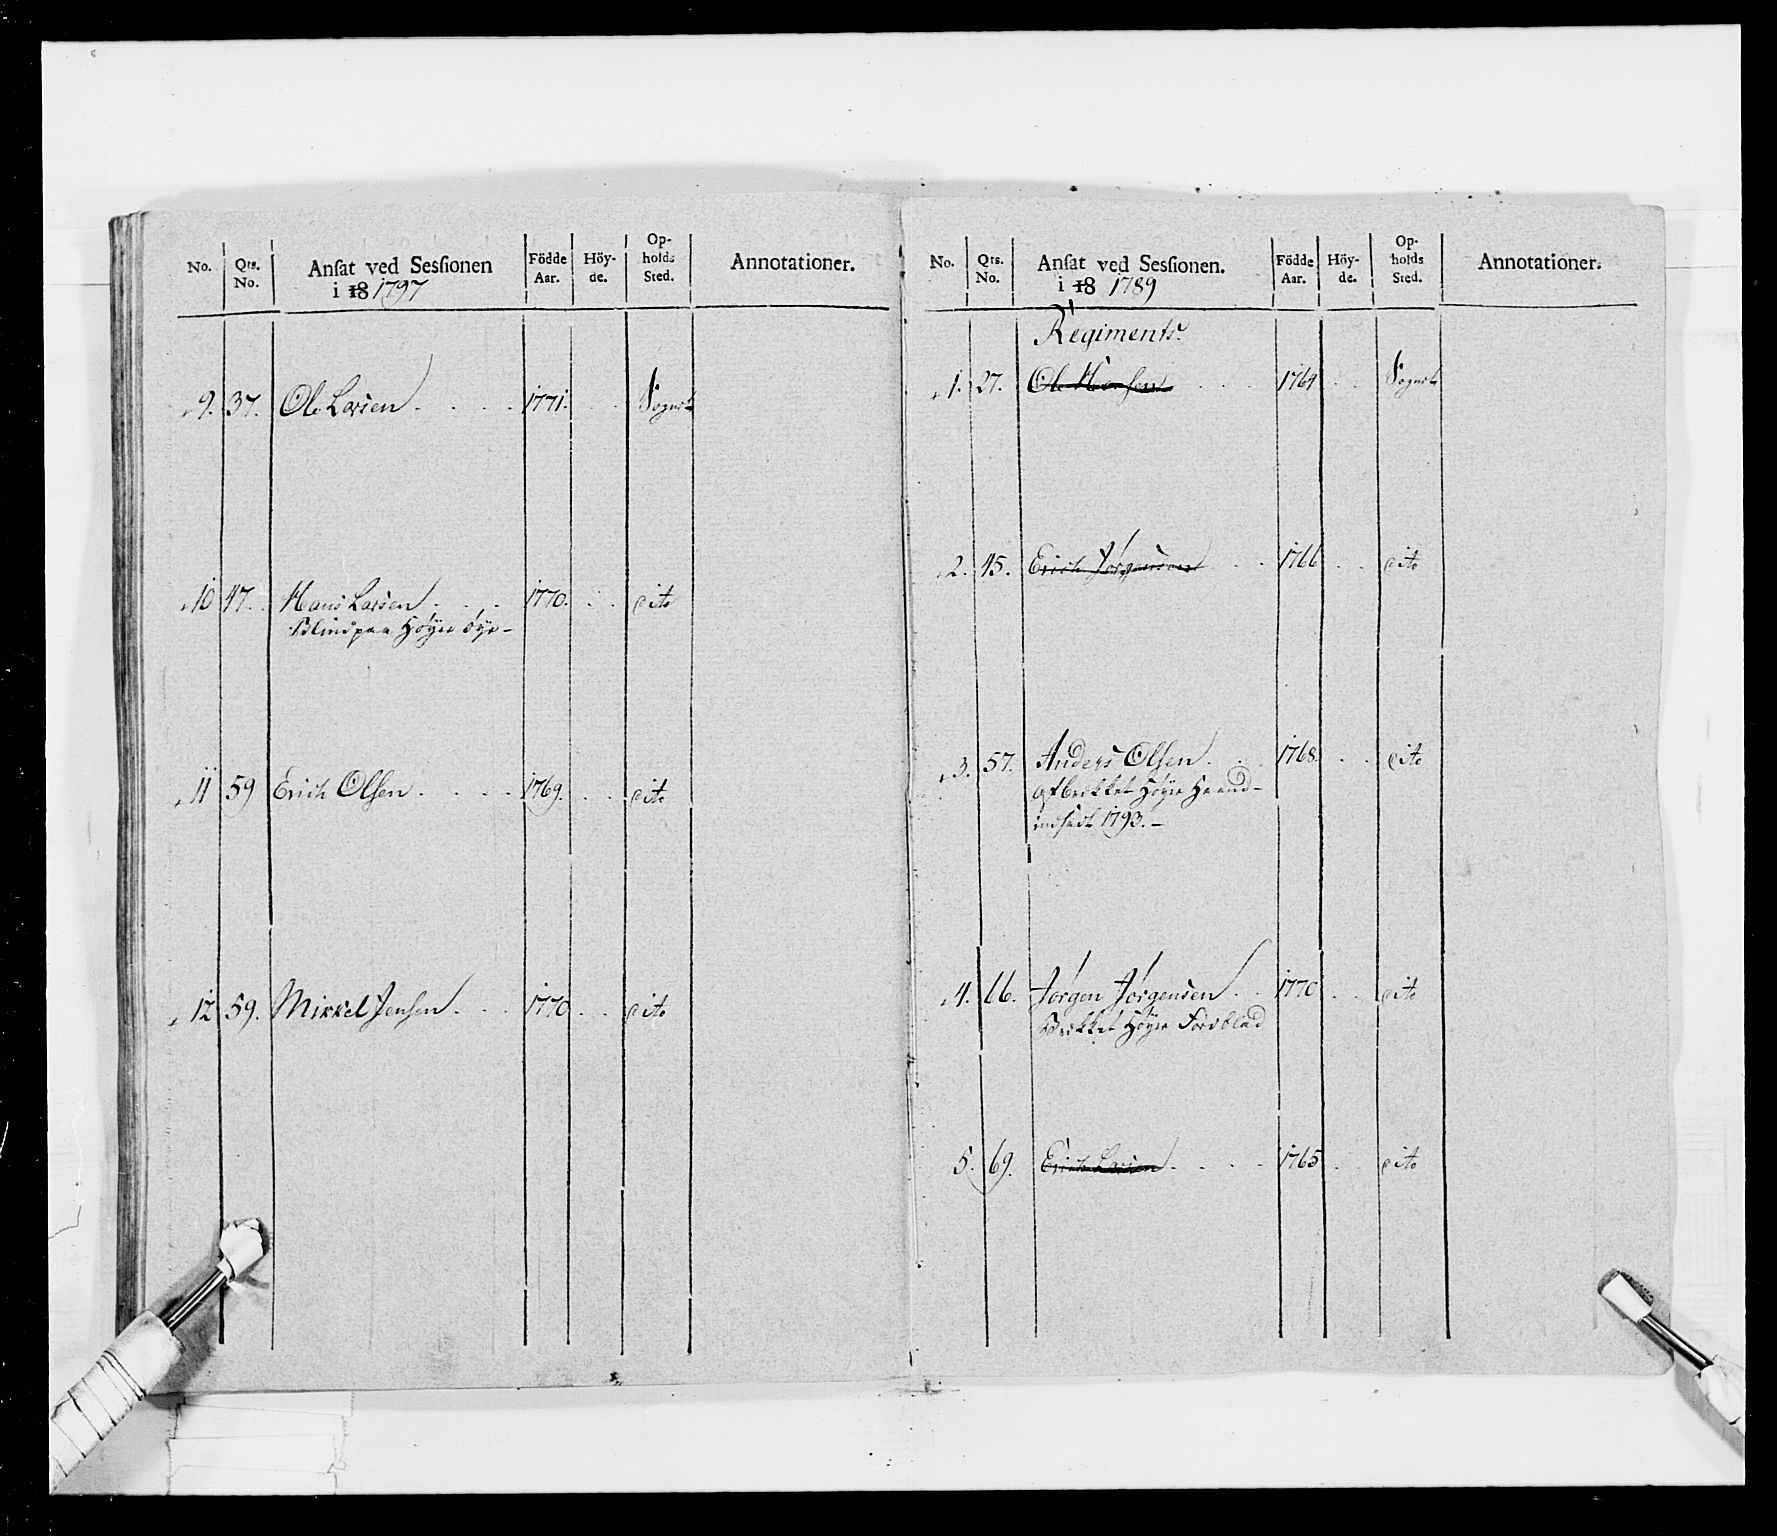 No. Qrs. No. Ansat ved Sessionen i 18 1797 Födde Aar. Höyde. Opholds Sted. Annotationer.
9. 37. Ole Larsen 1771.
10 47. Hans Larsen 1770. dito
Blind paa Høyre Øye
11 59 Erich Olsen 1769. dito
12 59. Mikkel Jensen 1770 dito
No. Qrs. No. Ansat ved Sessionen. i 18 1789 Födde Aar. Höyde. Opholds Sted. Annotationer.
Regiments
1. 27. Ole Hansen 1764
2. 45. Erich Jørgensen 1766 dito
3. 57. Anders Olsen 1768. dito
Høyre Haand
1793.
4. 66. Jørgen Jørgensen 1770 dito
Brækket Høyre
5. 69. Erich Larsen 1765 dito